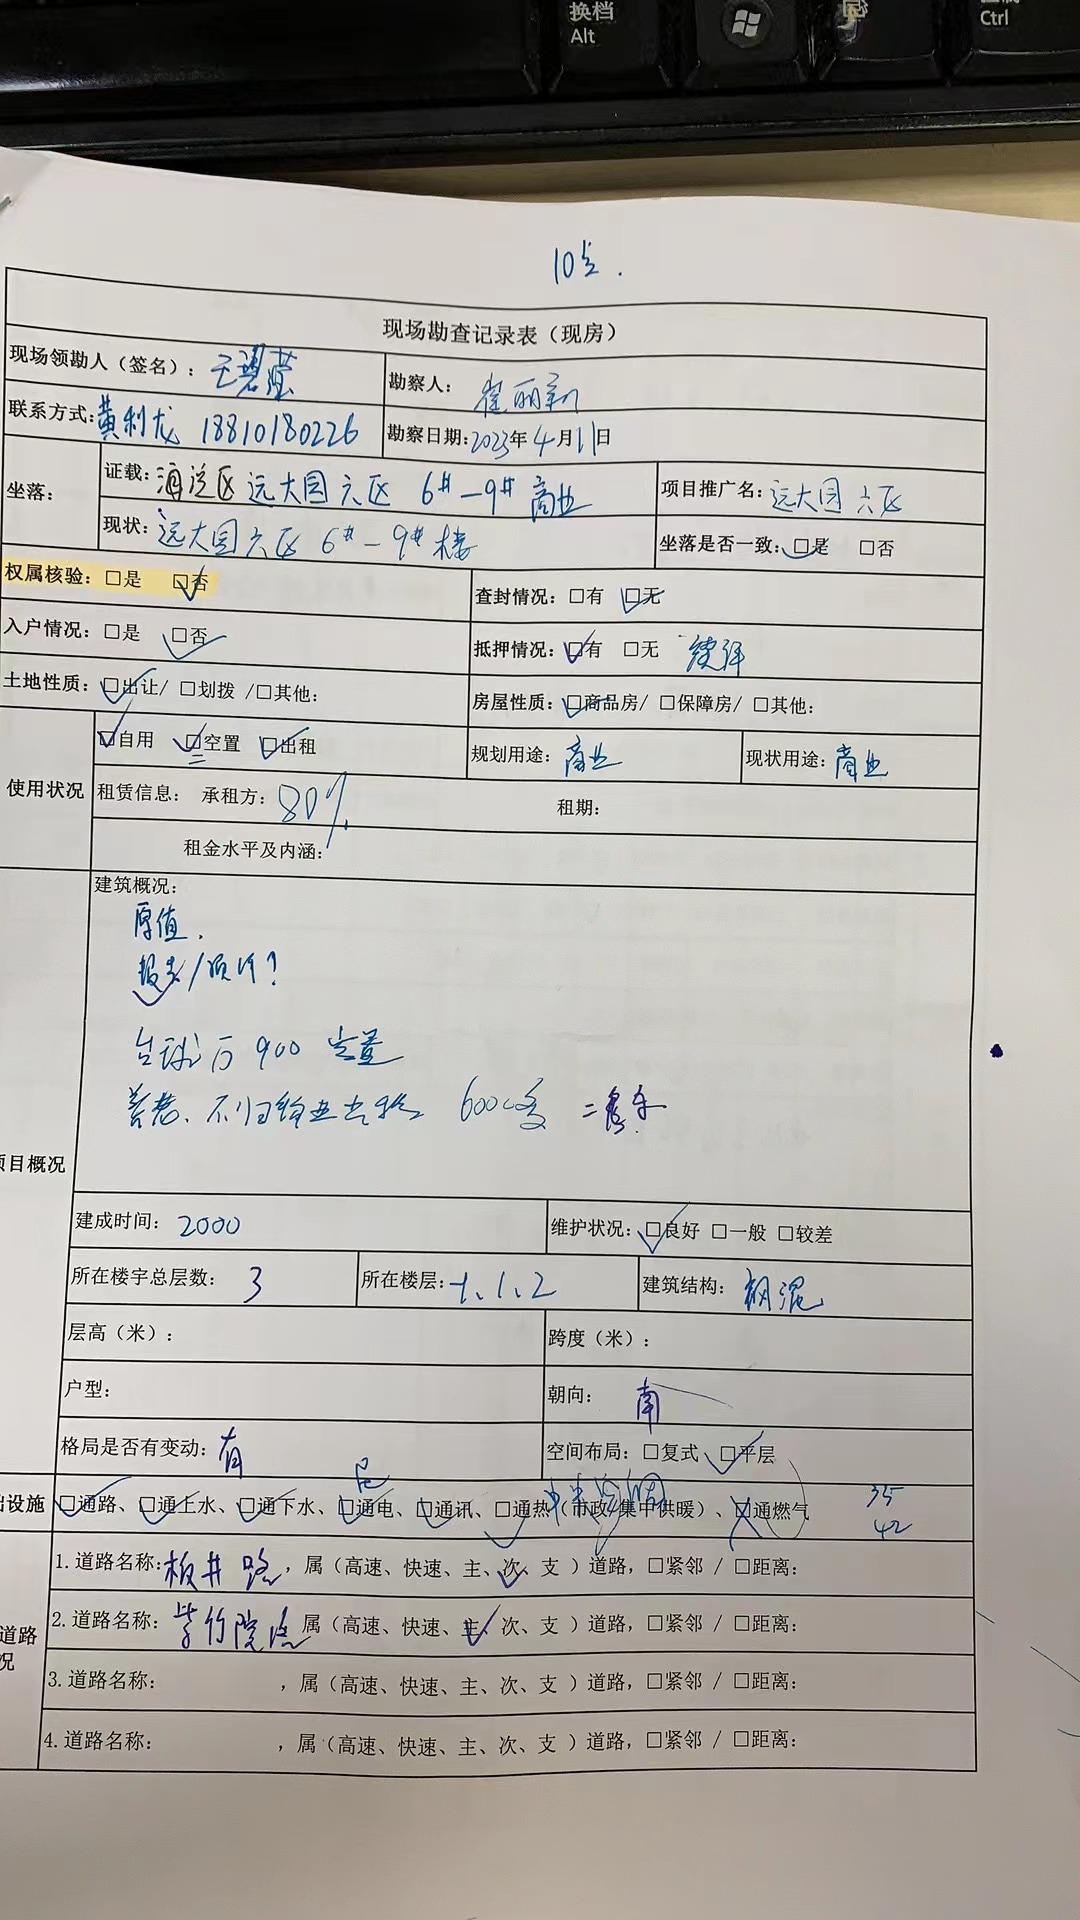 换档
Alt
Ctrl
10点.
现场勘查记录表（现房）
现场领勘人（签名）：王碧莹
勘察人：崔丽新
联系方式：黄利龙 18810180226
勘察日期：2023年4月11日
坐落：
证载：海淀区远大园六区 6#-9# 商业
项目推广名：远大园六区
现状：远大园六区 6#-9#楼
坐落是否一致：☑是 □否
权属核验：□是 ☑否
查封情况：□有 ☑无
入户情况：□是 ☑否
抵押情况：☑有 □无 续评
土地性质：☑出让/ □划拨 /□其他：
房屋性质：☑商品房/ □保障房/ □其他：
使用状况
☑自用 ☑空置 ☑出租
规划用途：商业
现状用途：商业
租赁信息： 承租方：80%
租期：
租金水平及内涵：
项目概况
建筑概况：
原值.
报表/预付?
台球厅 900 空置
6000多
建成时间：2000
维护状况：☑良好 □一般 □较差
所在楼宇总层数：3
所在楼层：-1、1、2
建筑结构：钢混
层高（米）：
跨度（米）：
户型：
朝向：南
格局是否有变动：有
空间布局：□复式 ☑平层
础设施
☑通路、☑通上水、☑通下水、☑通电、☑通讯、☑通热（市政/集中供暖）、☒通燃气
中央空调
35
42
道路
况
1.道路名称：板井路，属（高速、快速、主、次、支 ）道路，□紧邻 / □距离：
2.道路名称：紫竹院路 属（高速、快速、主、次、支 ）道路，□紧邻 / □距离：
3.道路名称： ，属（高速、快速、主、次、支 ）道路，□紧邻 / □距离：
4.道路名称： ，属（高速、快速、主、次、支 ）道路，□紧邻 / □距离：